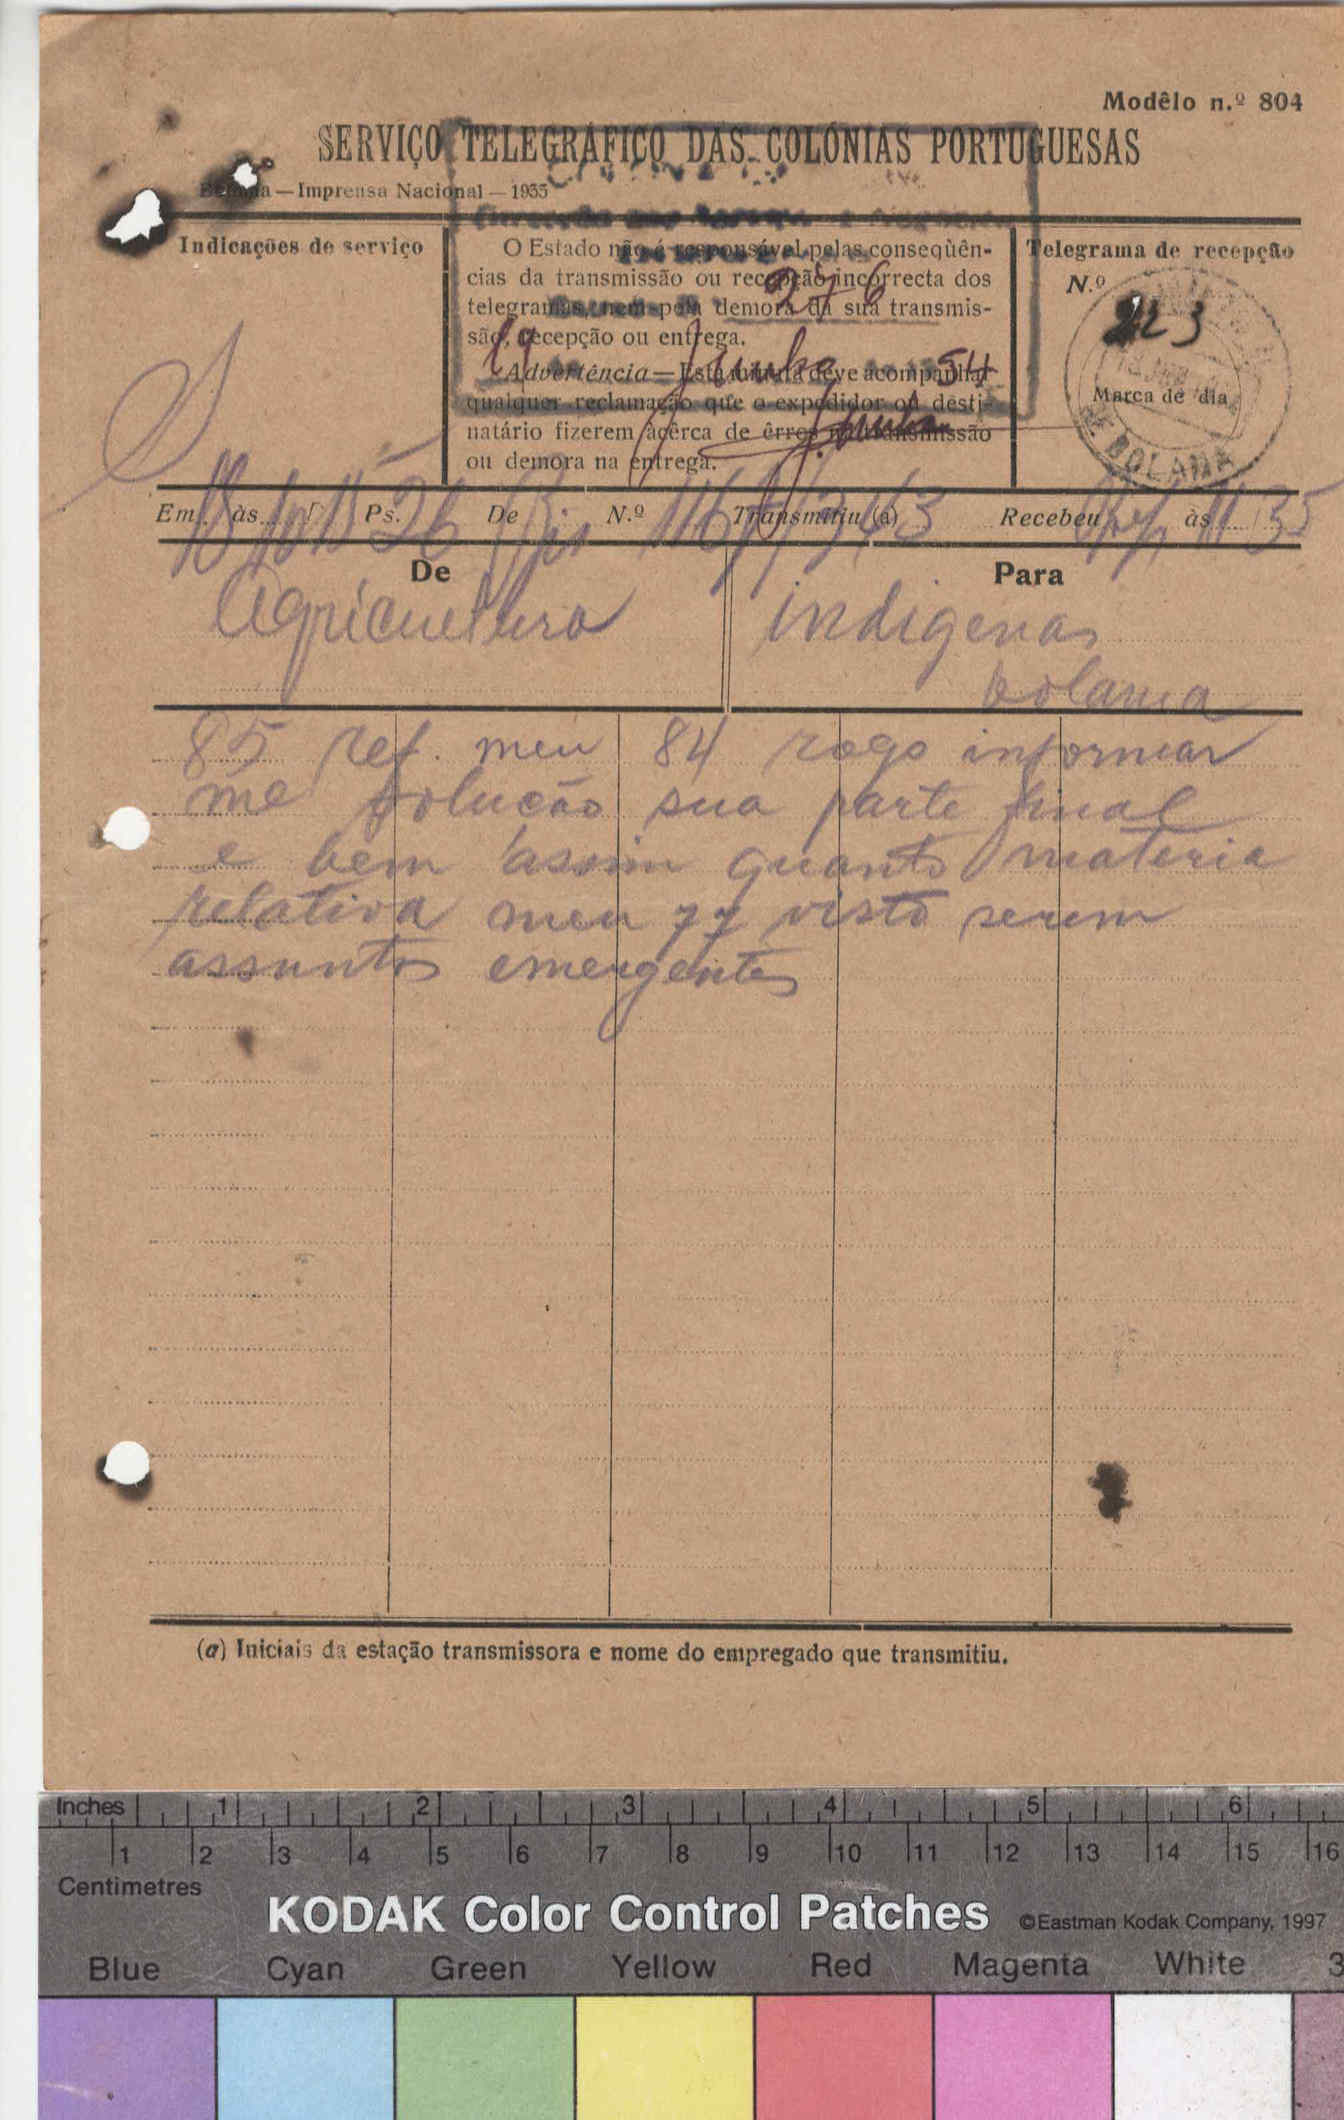 Modêlo n.º 804
SERVIÇO TELEGRÁFICO DAS COLÓNIAS PORTUGUESAS
Imprensa Nacional — 1935
Indicações de serviço
O Estado não é responsável pelas conseqüên-
cias da transmissão ou recepção incorrecta dos
telegramas, nem pela demora da sua transmis-
são, recepção ou entrega.
Advertência — Esta deve acompanhar
qualquer reclamação que o expedidor ou desti-
natário fizerem àcêrca de êrros na transmissão
ou demora na entrega.
276
19 Junho
Telegrama de recepção
N.º 223
Marca de dia
BOLAMA
Em às Ps. 26 De N.º 116 Transmitiu (a) Recebeu às 11 35
De
Para
Agricultura
indigenas
Bolama
85 ref. meu 84 rogo informar
me solucão sua parte final
e bem assim quanto materia
relativa meu 77 visto serem
assuntos emergentes
(a) Iniciais da estação transmissora e nome do empregado que transmitiu.
Inches 1 2 3 4 5 6
1 2 3 4 5 6 7 8 9 10 11 12 13 14 15 16
Centimetres
KODAK Color Control Patches ©Eastman Kodak Company, 1997
Blue Cyan Green Yellow Red Magenta White 3